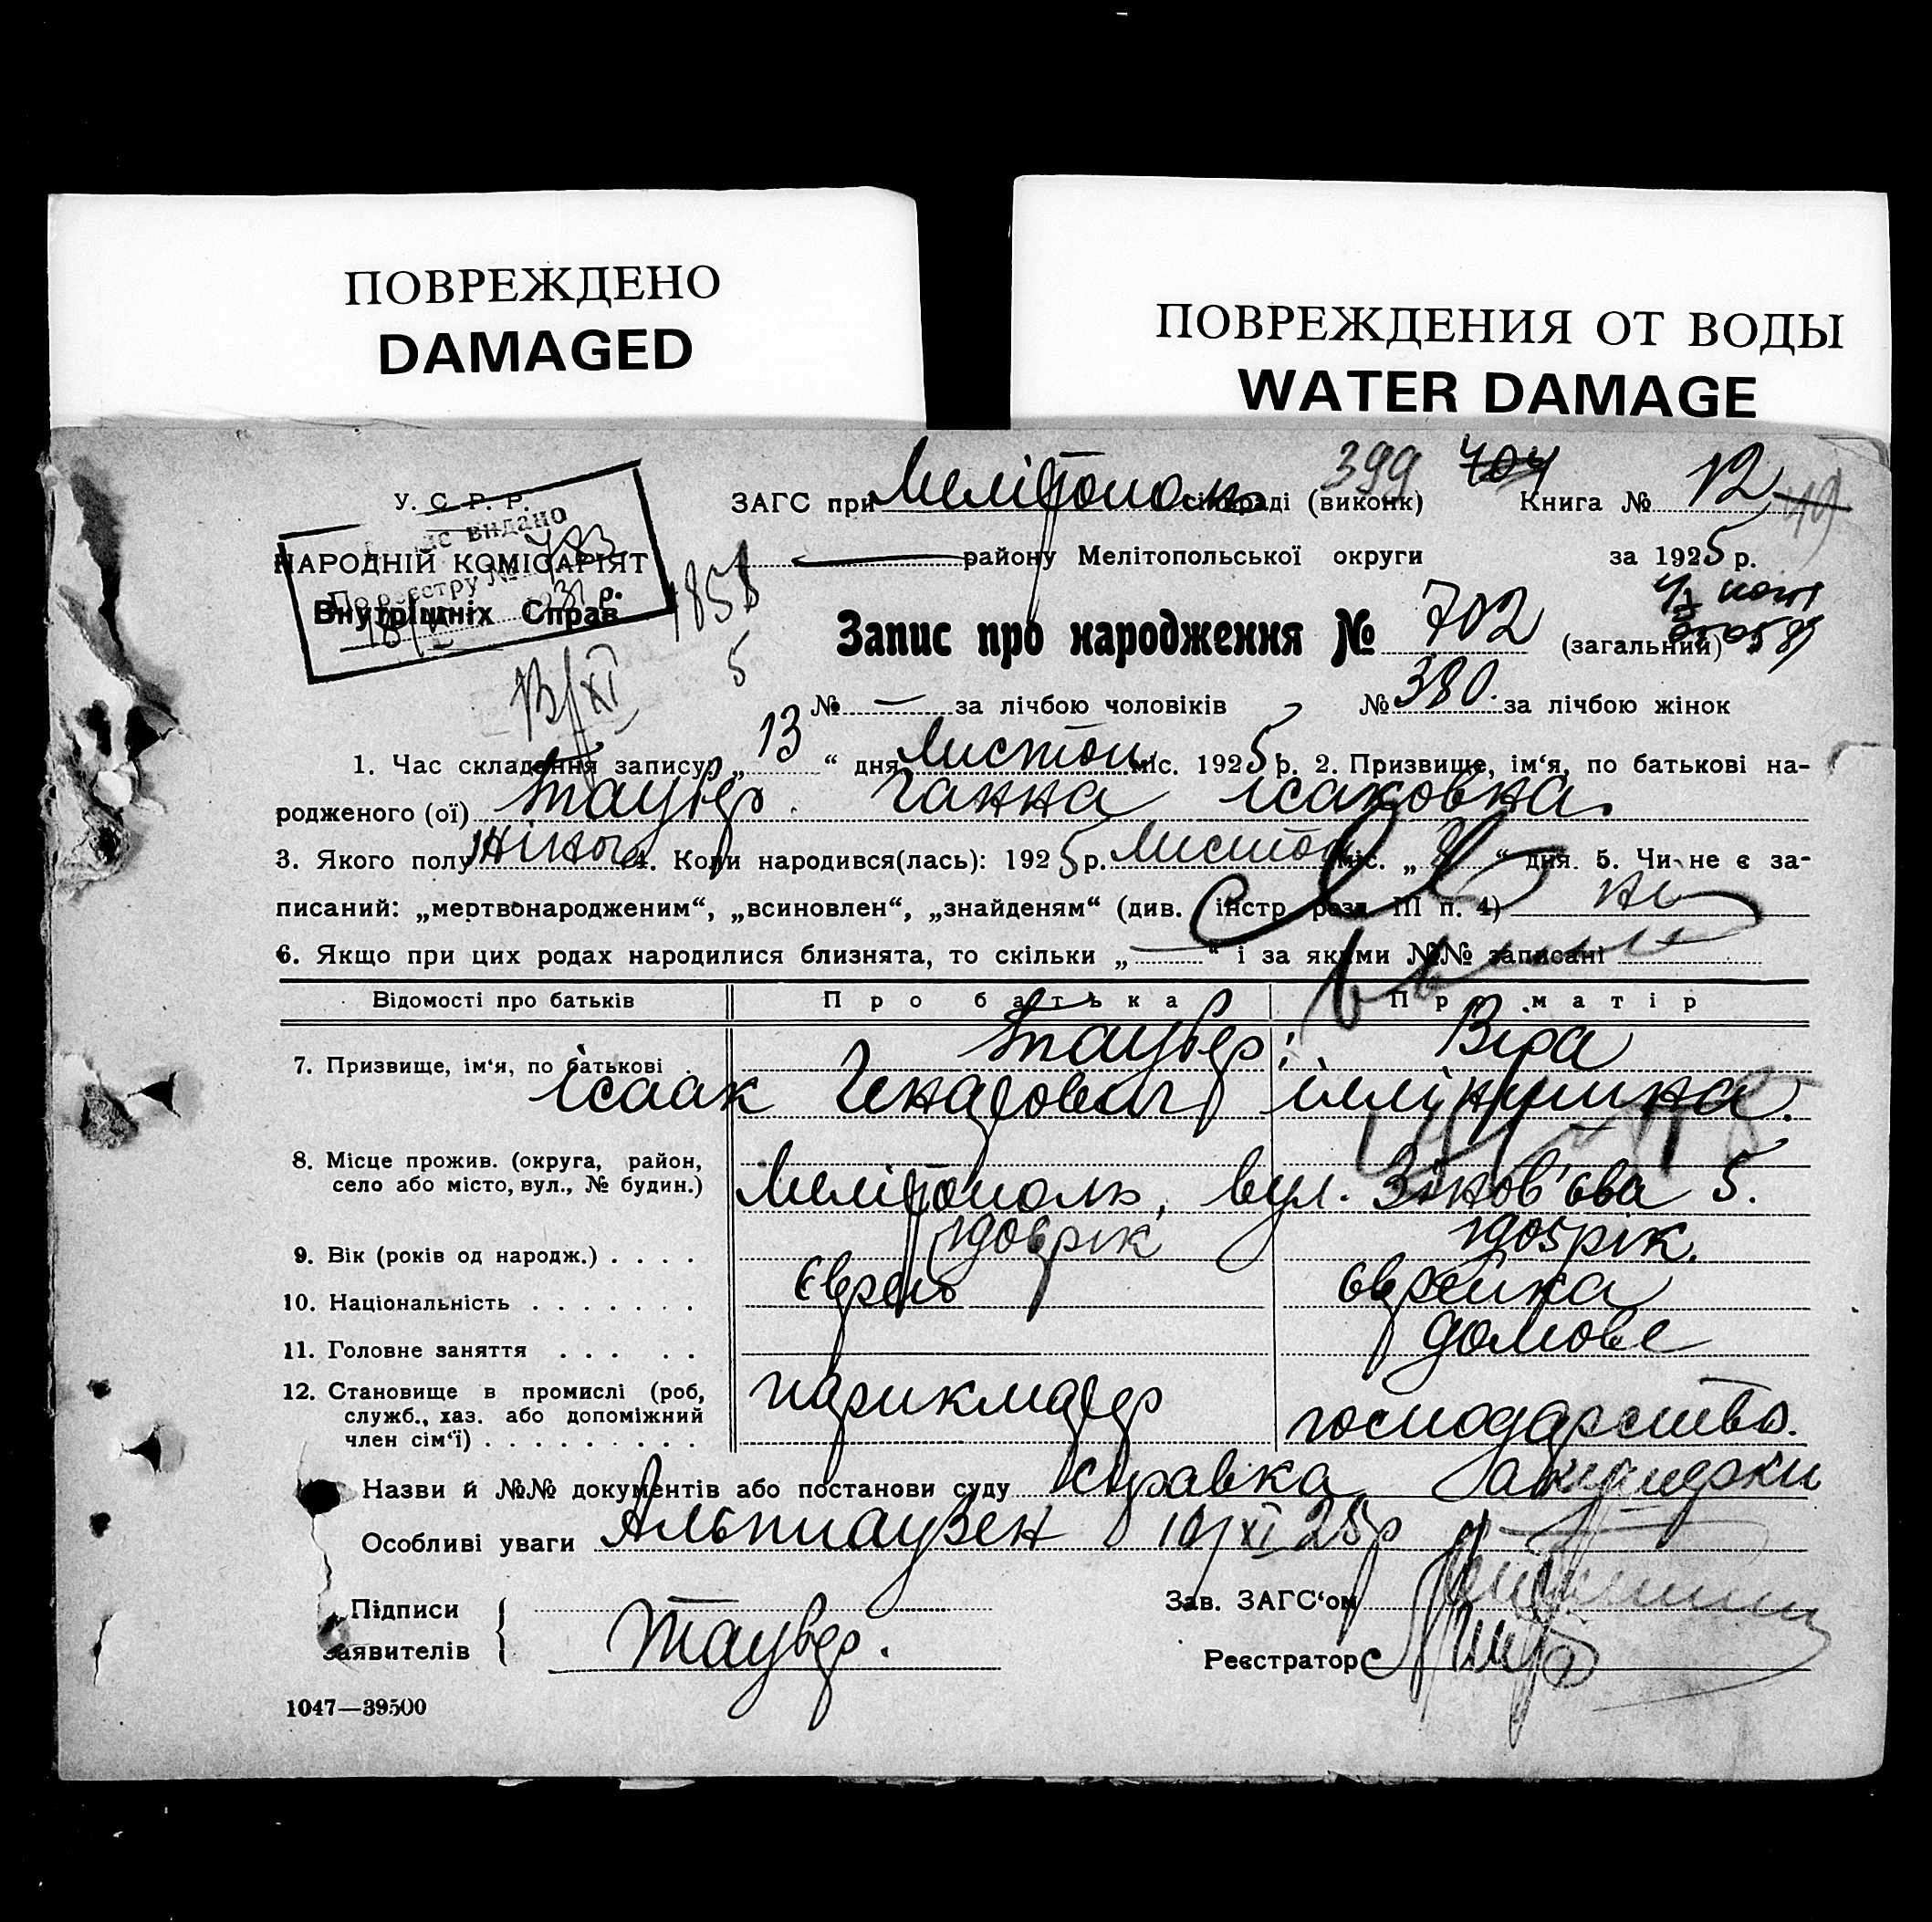 ПОВРЕЖДЕНО
DAMAGED
ПОВРЕЖДЕНИЯ ОТ ВОДЫ
WATER DAMAGE
399 704
У. С. Р. Р. ЗАГС при Мелітополь сільраді (виконк) Книга № 12
видано
НАРОДНІЙ КОМІСАРІЯТ району Мелітопольської округи за 1925 р.
По реєстру №
Внутрішніх Справ
1858
5
Запис про народження № 702 (загальний)
№ — за лічбою чоловіків № 380. за лічбою жінок
13/XI
1. Час складення запису: „13“ дня Листоп. міс. 1925 р. 2. Призвище, ім‘я, по батькові на-
родженого (ої) Таубер Ганна Ісаковна.
3. Якого полу жіноч. 4. Коли народився(лась): 1925 р. Листоп міс. „ “ дня. 5. Чи не є за-
писаний: „мертвонародженим“, „всиновлен“, „знайденям“ (див. інстр. розд. III п. 4) ні
6. Якщо при цих родах народилися близнята, то скільки „—“ і за якими №№ записані
Відомості про батьків Про батька Про матір
7. Призвище, ім‘я, по батькові Таубер Віра
Ісаак
8. Місце прожив. (округа, район,
село або місто, вул., № будин.) Мелітополь, вул. Зінов'єва 5.
9. Вік (років од народж.) рік рік.
10. Національність єврей єврейка
11. Головне заняття домове
12. Становище в промислі (роб,
служб., хаз. або допоміжний
член сім‘ї) парикмахер господарство.
Назви й №№ документів або постанови суду справка Закушерки
Особливі уваги Альтгаузен 10/XI 25р
Підписи
заявителів Таубер.
Зав. ЗАГС‘ом
Реєстратор
1047—39500